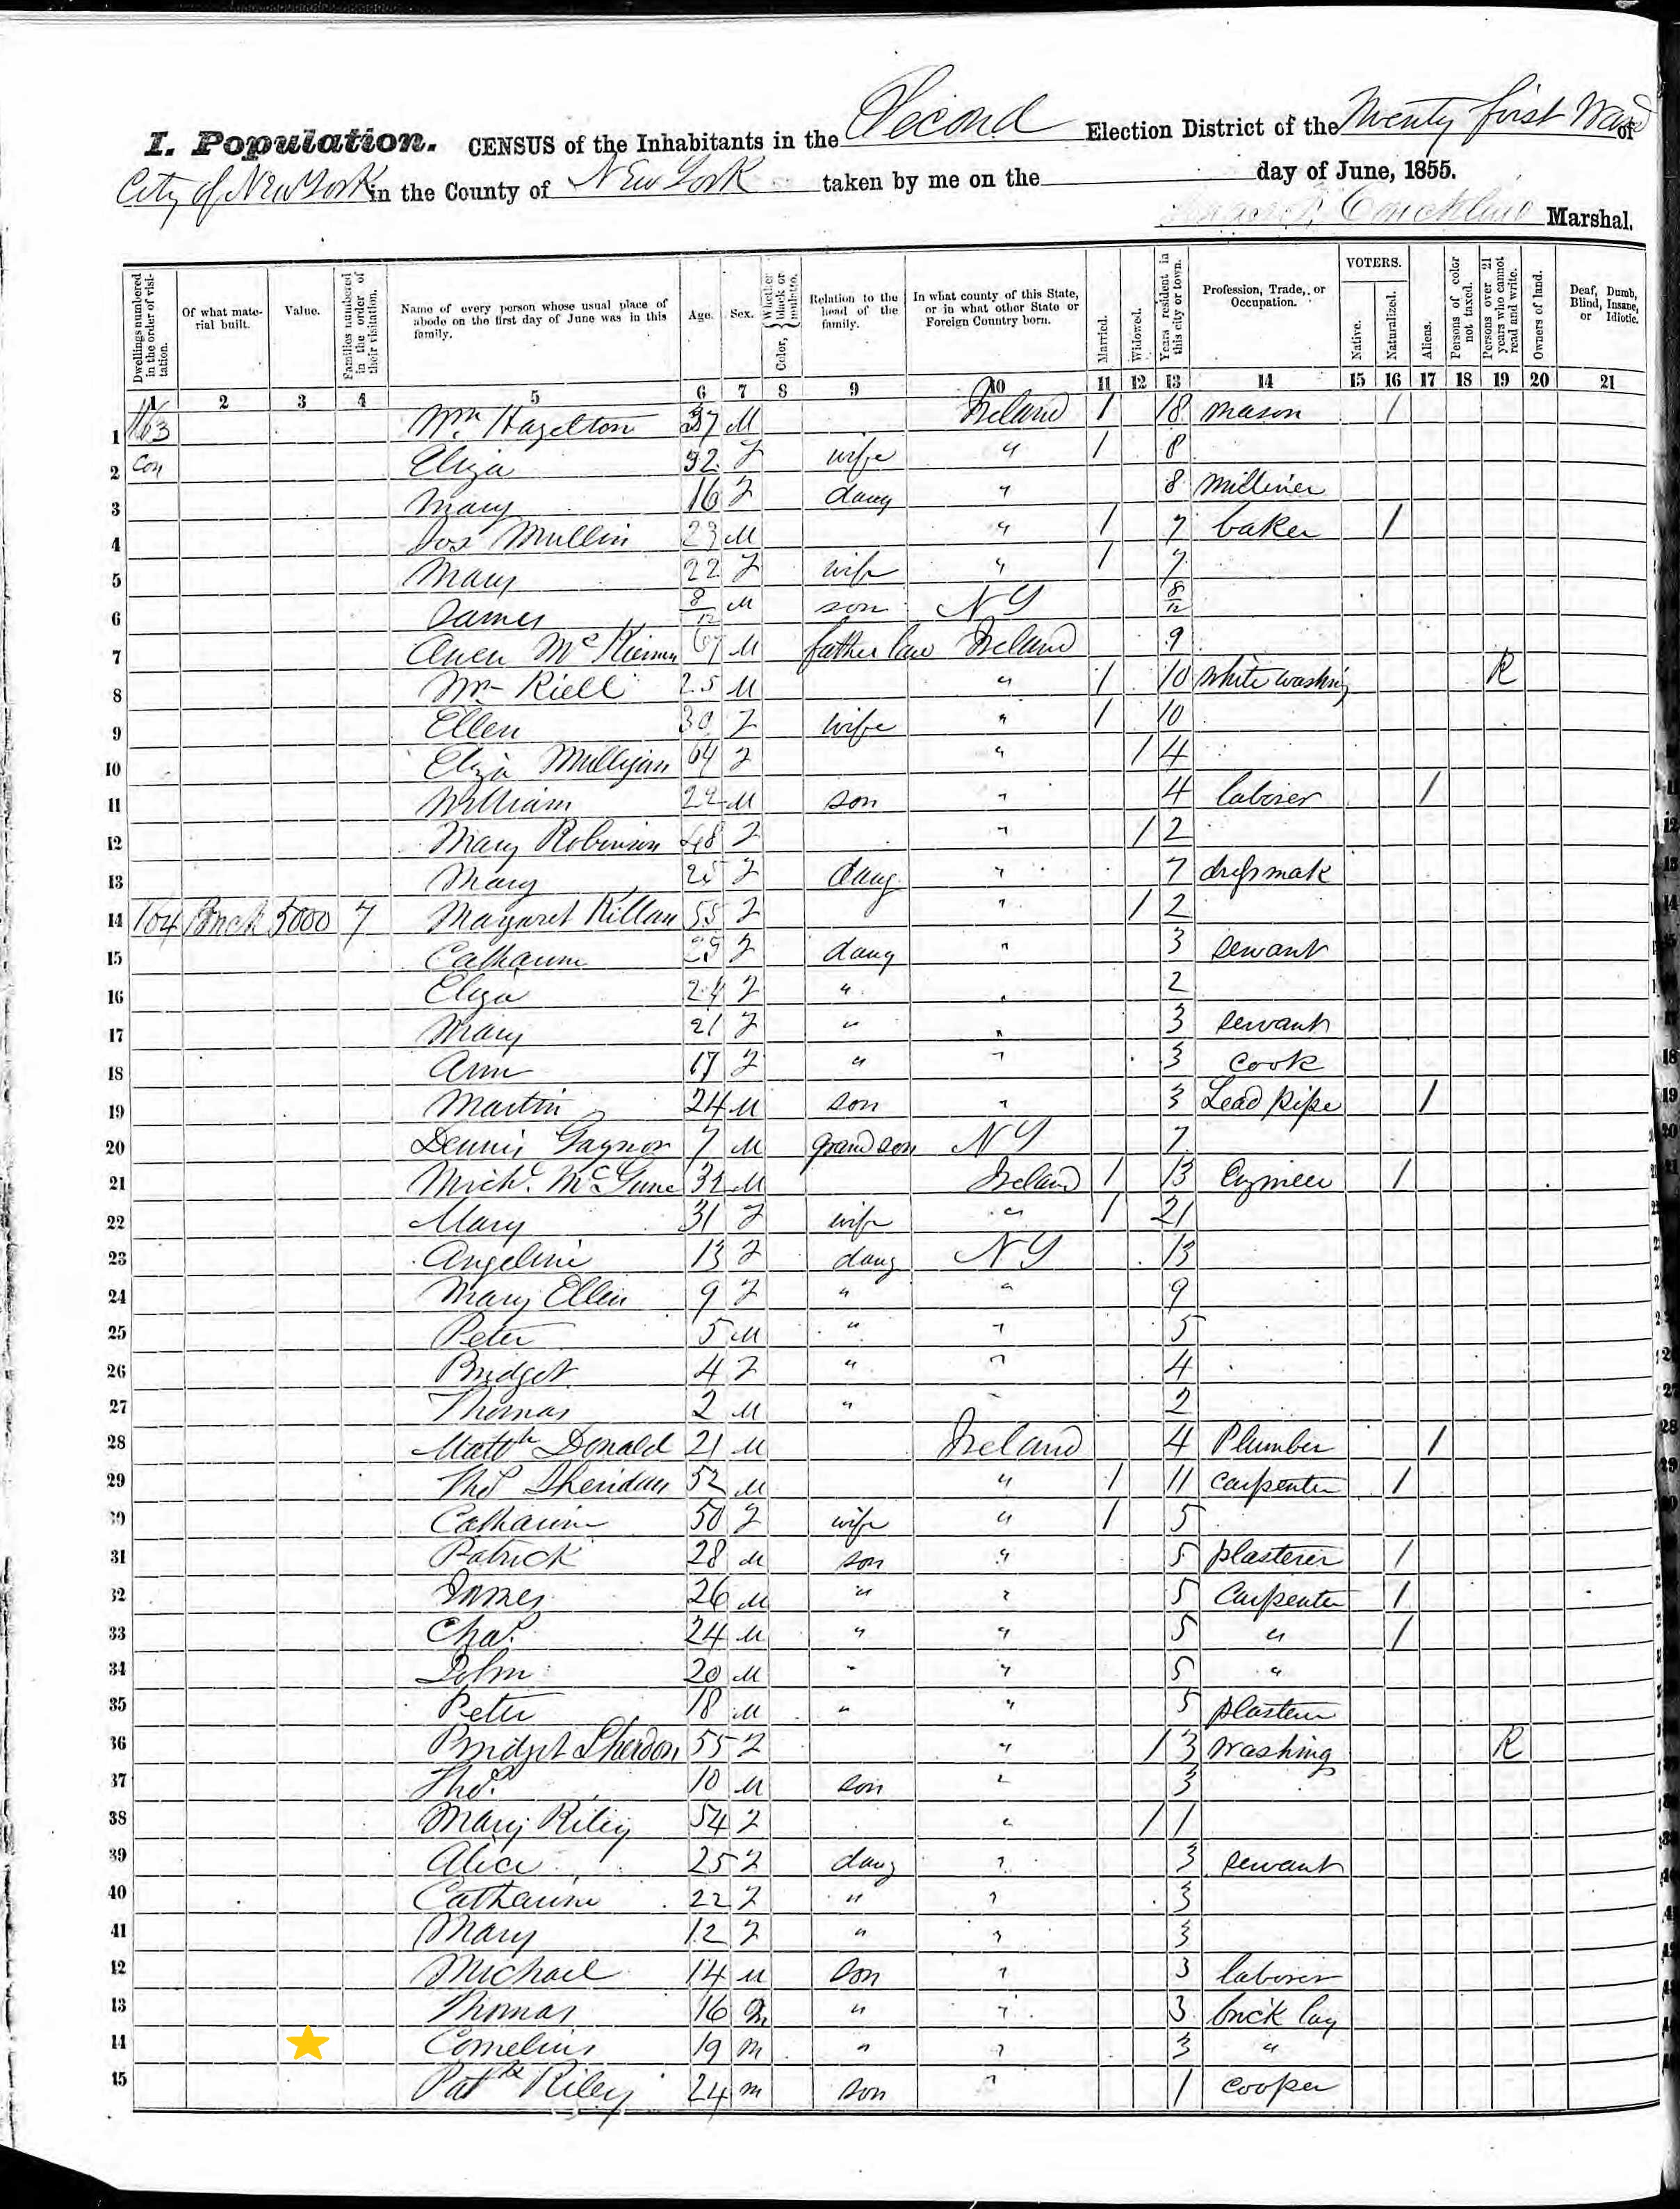 I. Population. CENSUS of the Inhabitants in the Second Election District of the Twenty first Ward of
City of New York in the County of New York taken by me on the day of June, 1855.
Marshal.
Dwellings numbered in the order of visitation. Of what material built. Value. Families numbered in the order of their visitation. Name of every person whose usual place of abode on the first day of June was in this family. Age. Sex. Color, Whether black or mulatto. Relation to the head of the family. In what county of this State, or in what other State or Foreign Country born. Married. Widowed. Years resident in this city or town. Profession, Trade, or Occupation. VOTERS. Native. Naturalized. Aliens. Persons of color not taxed. Persons over 21 years who cannot read and write. Owners of land. Deaf, Dumb, Blind, Insane, or Idiotic.
1 2 3 4 5 6 7 8 9 10 11 12 13 14 15 16 17 18 19 20 21
1 163 Wm Hazelton 37 M Ireland 1 18 mason 1
2 Con Eliza 32 F wife " 1 8
3 Mary 16 F daug " 8 milliner
4 Jos Mullin 23 M " 1 7 baker 1
5 Mary 22 F wife " 1 7
6 James 8/12 M son NY 8/12
7 Owen McKiernan 67 M father law Ireland 9
8 Wm Riell 25 M " 1 10 white washing R
9 Ellen 30 F wife " 1 10
10 Eliza Mulligan 64 F " 1 4
11 William 22 M son " 4 laborer 1
12 Mary Robinson 48 F " 1 2
13 Mary 25 F daug " 7 dressmak
14 164 Brick 5000 7 Margaret Killan 55 F " 1 2
15 Catharine F daug " 3 servant
16 Eliza 24 F " " 2
17 Mary 21 F " " 3 servant
18 Ann 17 F " " 3 cook
19 Martin 24 M son " 3 Lead pipe 1
20 Dennis Gaynor 7 M grandson NY 7
21 Michl. McGune M Ireland 1 13 Engineer 1
22 Mary 31 F wife " 1 21
23 Angeline 13 F daug NY 13
24 Mary Ellen 9 F " " 9
25 Peter 5 M " " 5
26 Bridget 4 F " " 4
27 Thomas 2 M " " 2
28 Matth Donald 21 M Ireland 4 Plumber 1
29 Thos Sheridan 52 M " 1 11 carpenter 1
30 Catharine 50 F wife " 1 5
31 Patrick 28 M son " 5 plasterer 1
32 James 26 M " " 5 Carpenter 1
33 Chas. 24 M " " 5 " 1
34 John 20 M " " 5 "
35 Peter 18 M " " 5 plasterer
36 Bridget Sherdon 55 F " 1 3 washing R
37 Thos. 10 M son " 3
38 Mary Riley 54 F " 1 1
39 Alice 25 F daug " 3 servant
40 Catharine 22 F " " 3
41 Mary 12 F " " 3
12 Michael 14 M son " 3 laborer
13 Thomas 16 M " " 3 brick lay
14 Cornelius 19 m " " 3 "
15 Patk Riley 24 m son " 1 cooper